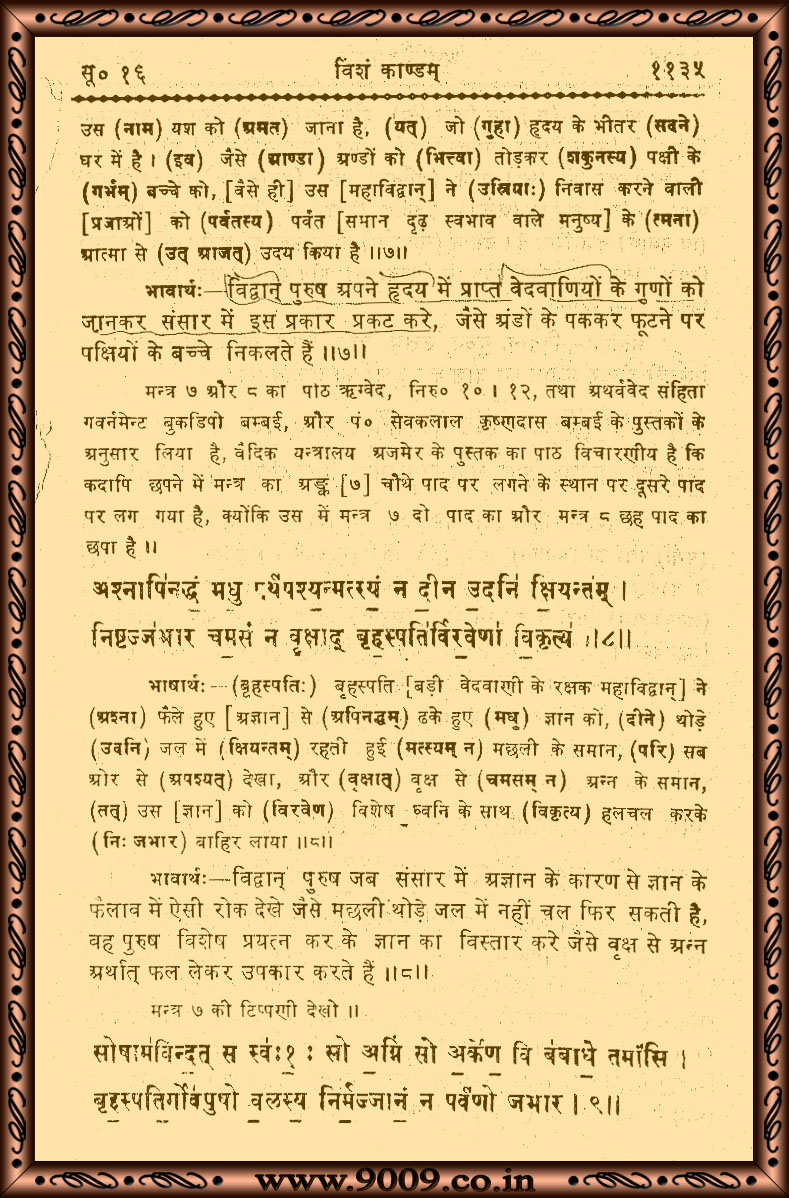 सू० १६ विंशं काण्डम् ११३५
उस (नाम) यश को (अमत) जाना है, (यत्) जो (गुहा) हृदय के भीतर (सदने)
घर में है । (इव) जैसे (आण्डा) अण्डों को (भित्त्वा) तोड़कर (शकुनस्य) पक्षी के
(गर्भम्) बच्चे को, [वैसे ही] उस [महाविद्वान्] ने (उस्रियाः) निवास करने वाली
[प्रजाओं] को (पर्वतस्य) पर्वत [समान दृढ़ स्वभाव वाले मनुष्य] के (त्मना)
आत्मा से (उत् आजत्) उदय किया है ॥७॥
भावार्थः—विद्वान् पुरुष अपने हृदय में प्राप्त वेदवाणियों के गुणों को
जानकर संसार में इस प्रकार प्रकट करे, जैसे अंडों के पककर फूटने पर
पक्षियों के बच्चे निकलते हैं ॥७॥
मन्त्र ७ और ८ का पाठ ऋग्वेद, निरु० १० । १२, तथा अथर्ववेद संहिता
गवर्नमेन्ट बुकडिपो बम्बई, और पं० सेवकलाल कृष्णदास बम्बई के पुस्तकों के
अनुसार लिया है, वैदिक यन्त्रालय अजमेर के पुस्तक का पाठ विचारणीय है कि
कदापि छपने में मन्त्र का अङ्क [७] चौथे पाद पर लगने के स्थान पर दूसरे पाद
पर लग गया है, क्योंकि उस में मन्त्र ७ दो पाद का और मन्त्र ८ छह पाद का
छपा है ॥
अश्नापि॑नद्धं मधु पर्य॑पश्य॒न्मत्स्यं न दी॒न उ॒दनि॑ क्षि॒यन्त॑म् ।
निष्टज्ज॑भार चम॒सं न वृ॒क्षाद् बृह॒स्पति॑र्विर॒वेणा॑ वि॒कृत्य॑ ॥८॥
भाषार्थः—(बृहस्पतिः) बृहस्पति [बड़ी वेदवाणी के रक्षक महाविद्वान्] ने
(अश्ना) फैले हुए [अज्ञान] से (अपिनद्धम्) ढके हुए (मधु) ज्ञान को, (दीने) थोड़े
(उदनि) जल में (क्षियन्तम्) रहती हुई (मत्स्यम् न) मछली के समान, (परि) सब
ओर से (अपश्यत्) देखा, और (वृक्षात्) वृक्ष से (चमसम् न) अन्न के समान,
(तत्) उस [ज्ञान] को (विरवेण) विशेष ध्वनि के साथ (विकृत्य) हलचल करके
(निः जभार) बाहिर लाया ॥८॥
भावार्थः—विद्वान् पुरुष जब संसार में अज्ञान के कारण से ज्ञान के
फैलाव में ऐसी रोक देखे जैसे मछली थोड़े जल में नहीं चल फिर सकती है,
वह पुरुष विशेष प्रयत्न कर के ज्ञान का विस्तार करे जैसे वृक्ष से अन्न
अर्थात् फल लेकर उपकार करते हैं ॥८॥
मन्त्र ७ की टिप्पणी देखो ॥
सोषाम॑विन्द॒त् स स्वः॒१॒ः सो अ॒ग्निं सो अ॒र्केण॒ वि ब॑बाधे॒ तमां॑सि ।
बृह॒स्पति॒र्गोव॑पुषो व॒लस्य॒ निर्म॒ज्जानं॒ न पर्व॑णो जभार । ९॥
www.9009.co.in